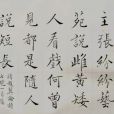 主張紛紛藝
苑說雌黃矮
人看戲何曾
見都是隨人
說短長